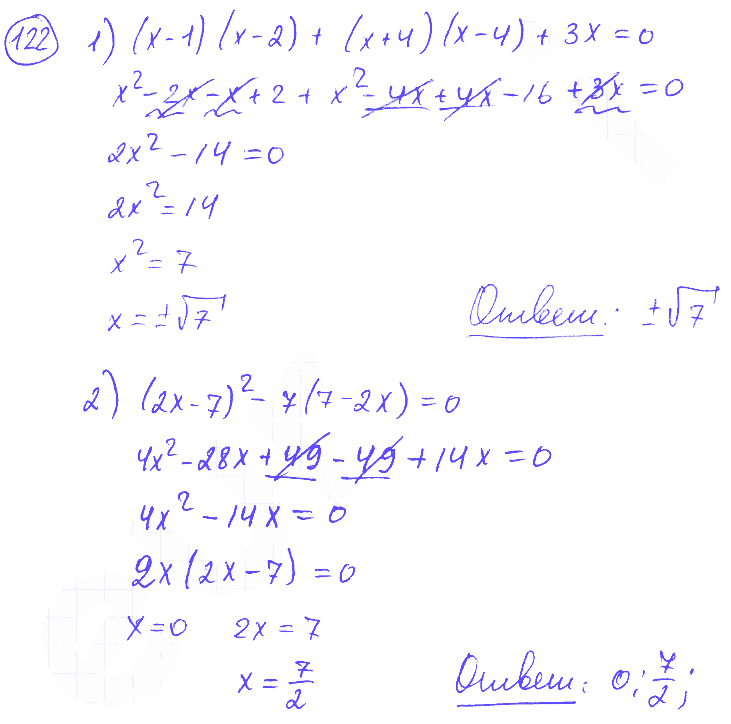 122 1) (x-1)(x-2) + (x+4)(x-4) + 3x = 0
x² - 2x - x + 2 + x² - 4x + 4x - 16 + 3x = 0
2x² - 14 = 0
2x² = 14
x² = 7
x = ±√7 Ответ: ±√7
2) (2x-7)² - 7(7-2x) = 0
4x² - 28x + 49 - 49 + 14x = 0
4x² - 14x = 0
2x(2x-7) = 0
x=0 2x = 7
x = 7/2 Ответ: 0; 7/2;